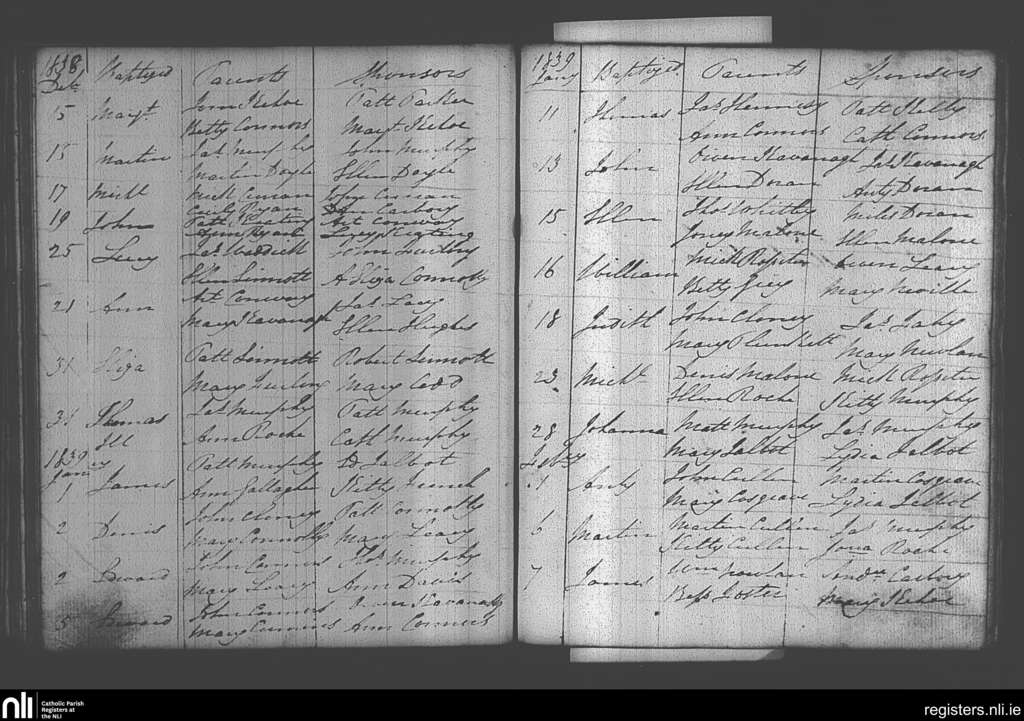 1838 Baptized Parents Sponsors
Dec.
15 Margt. John Kehoe Patt Parker
Betty Connors Margt. Kehoe
15 Martin Jas. Murphy John Murphy
Doyle Ellen Doyle
17 Michl
19 John Patt Keating Art Conway
Ann Ryan Lucy Keating
25 Lucy Jas.
Ellen Sinnott Aliza Connolly
21 Ann Art Conway Jas. Lacy
Mary Kavanagh Ellen Hughes
31 Eliza Patt Sinnott Robert Sinnott
Mary Mary Codd
31 Thomas Jas. Murphy Patt Murphy
Ill Ann Roche Cath Murphy
1839 Patt Murphy Talbot
Jany
1 James Ann Gallagher Kitty French
2 Denis John Cloney Patt Connolly
Mary Connolly Mary Leary
2 Edward John Connors Thos. Murphy
Mary Leary Ann Davis
5 Edward John Connors Owen Kavanagh
Mary Connors Ann Connors
1839 Baptized Parents Sponsors
Jany
11 Thomas Jas. Hennessy Patt Kelly
Ann Connors Cath Connors
13 John Owen Kavanagh Jas. Kavanagh
Ellen Doran Anty Doran
15 Ellen Thos. Whitty Miles Doran
Joney Malone Ellen Malone
16 William Mich Rositer Owen Leary
Betty Grey Mary Neville
18 Judith John Cloney Jas.
Mary Plunkett Mary Nowlan
23 Michl. Denis Malone Mick Rositer
Ellen Roche Kitty Murphy
28 Johanna Matt Murphy Jas. Murphy
Feby Mary Talbot Lydia Talbot
Anty John Cullen Martin Cosgrave
Mary Cosgrave Lydia Talbot
6 Martin Martin Cullen Jas. Murphy
Kitty Cullen Jona Roche
7 James Wm Nowlan Andw. Carbery
Bess Foster Mary Kehoe
nli Catholic Parish
Registers at
the NLI
registers.nli.ie